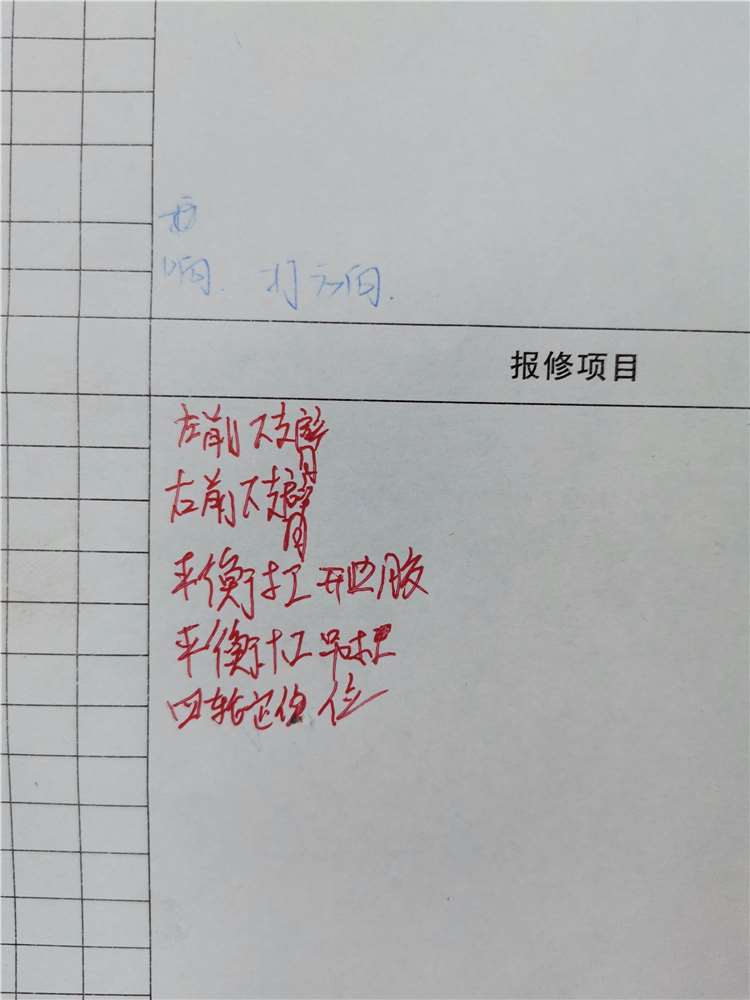 响. 打方向.
报修项目
左前下支臂
右前下支臂
平衡杠 胶
平衡杠吊杆
四轮定位